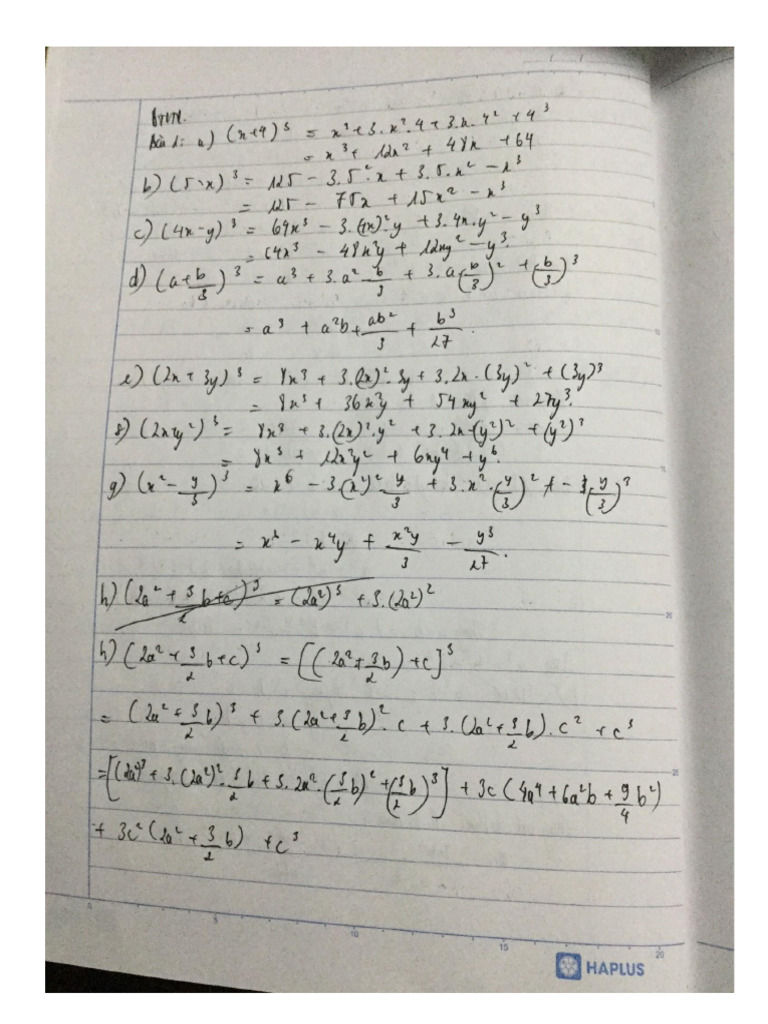 BTVN.
Bài 1: a) (x+4)³ = x³+3.x².4+3.x.4²+4³
= x³+ 12x² + 48x +64
b) (5-x)³ = 125 - 3.5².x + 3.5.x² - x³
= 125 - 75x + 15x² - x³
c) (4x-y)³ = 64x³ - 3.(4x)².y +3.4x.y² - y³
= 64x³ - 48x²y + 12xy² - y³.
d) (a+b/3)³ = a³ + 3.a².b/3 + 3.a.(b/3)² + (b/3)³
= a³ + a²b + ab²/3 + b³/27.
e) (2x+3y)³ = 8x³ + 3.(2x)².3y + 3.2x.(3y)² + (3y)³
= 8x³ + 36x²y + 54xy² + 27y³.
f) (2x+y²)³ = 8x³ + 3.(2x)².y² + 3.2x.(y²)² + (y²)³
= 8x³ + 12x²y² + 6xy⁴ + y⁶.
g) (x² - y/3)³ = x⁶ - 3.(x²)².y/3 + 3.x².(y/3)² - (y/3)³
= x⁶ - x⁴y + x²y/3 - y³/27.
h) (2a² + 3/2 b+c)³ = (2a²)³ + 3.(2a²)²
h) (2a² + 3/2 b+c)³ = [(2a²+3/2 b)+c]³
= (2a² + 3/2 b)³ + 3.(2a²+3/2 b)².c + 3.(2a²+3/2 b).c² + c³
=[(2a²)³ + 3.(2a²)².3/2 b + 3.2a².(3/2 b)² + (3/2 b)³] + 3c(4a⁴+6a²b+9/4 b²)
+ 3c²(2a² + 3/2 b) + c³
0 5 10 15 20
HAPLUS